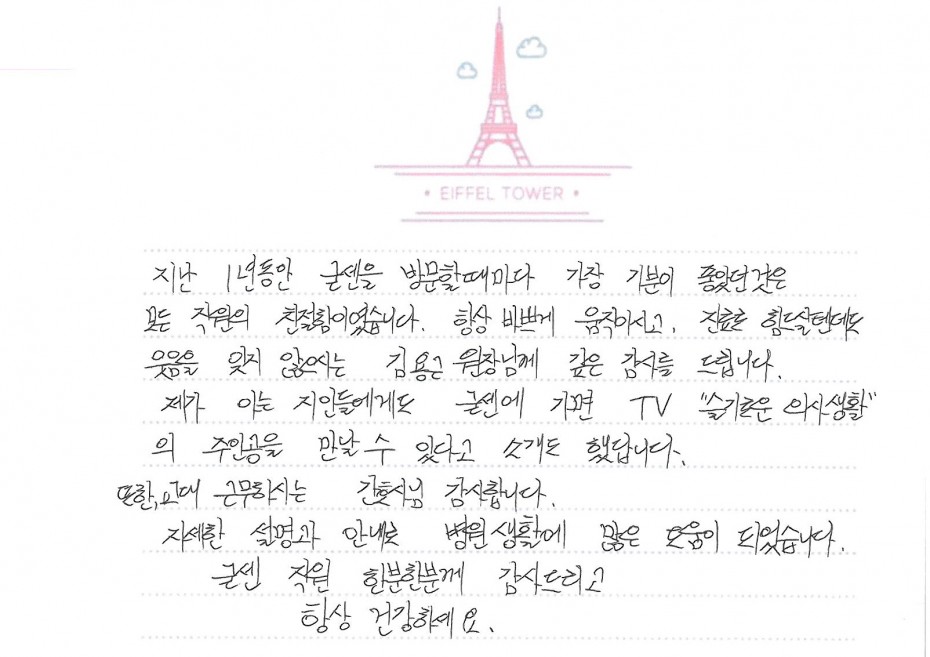 • EIFFEL TOWER •
지난 1년동안 굳센을 방문할때마다 가장 기분이 좋았던것은
모든 직원의 친절함이였습니다. 항상 바쁘게 움직이시고, 진료로 힘드실텐데도
웃음을 잊지 않으시는 김용근 원장님께 깊은 감사를 드립니다.
제가 아는 지인들에게도 굳센에 가면 TV "슬기로운 의사생활"
의 주인공을 만날 수 있다고 소개도 했답니다.
또한, 교대 근무하시는 간호사님 감사합니다.
자세한 설명과 안내로 병원생활에 많은 도움이 되었습니다.
굳센 직원 한분한분께 감사드리고
항상 건강하세요.